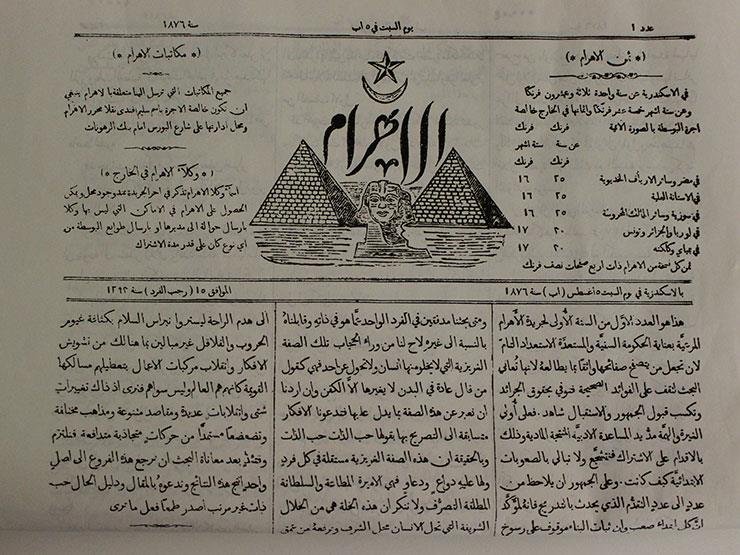 عدد ١
يوم السبت في ٥ اب
سنة ١٨٧٦
* ثمن الاهرام *
في الاسكندرية عن سنة واحدة ثلاثة وعشرون فرنكًا
وعن ستة اشهر خمسة عشر فرنكًا واثمانها في الخارج خالصة
اجرة البوسطة بالصورة الآتية
فرنك فرنك
عن سنة ستة اشهر
فرنك فرنك
في مصر وسائر الارياف الخديوية ٢٥ ١٦
في الاستانة العلية ٢٥ ١٦
في سورية وسائر الممالك المحروسة ٢٥ ١٦
في اوربا والجزائر وتونس ٣٠ ١٧
في بمباي وكلكته ٣٠ ١٧
ثمن كل نسخة من الاهرام ذات اربع صفحات نصف فرنك
الاهرام
* مكاتبات الاهرام *
جميع المكاتبات التي ترسل الينا متعلقة بالاهرام ينبغي
ان تكون خالصة الاجرة باسم سليم افندي نقلا محرر الاهرام
ومحل ادارتها على شارع البورس امام بنك الرهونات
* وكلاء الاهرام في الخارج *
اسماء وكلاء الاهرام تذكر في اخر الجريدة عند وجود محل ويمكن
الحصول على الاهرام في الاماكن التي ليس بها وكلا
بارسال حوالة الى مديرها او بارسال طوابع البوسطة من
اي نوع كان على قدر مدة الاشتراك
بالاسكندرية في يوم السبت ٥ اغسطس (اب) سنة ١٨٧٦
الموافق ١٥ (رجب الفرد) سنة ١٢٩٣
هذا هو العدد الاوّل من السنة الأولى لجريدة الأهرام
المرتبة بعناية الحكومة السنيّة والمستعدّة الاستعداد التام
لان تجعل من يتصفح صفحاتها واثقًا بما يطالعه لانها تُعاني
البحث لتقف على الفوائد الصحيحة فتوفي بحقوق الجرائد
وتكسب قبول الجمهور والاستقبال شاهد. فعلى أولي
الغيرة والهمة مدُّ يد المساعدة الادبيّة المنتجة المادية وذلك
بالاقدام على الاشتراك فتنجح ولا تبالي بالصعوبات
الابتدائية كيف كانت. وعلى الجمهور ان يلاحظ من
عددٍ الى عددٍ التقدُّم الذي يحدث بالتدريج فانهُ لمؤكّد
انَّ كل ابتداء صعب وان ثبات البناء موقوف على رسوخ
ومتى بحثنا مدققين في الفرد الواحد عمَّا هو في ذاته وقابلناهُ
بالنسبة الى غيره لاح لنا من وراء الحجاب تلك الصفة
الغريزية التي لا يخلو منها انسان ولا تحول عن احد فهي كقول
من قال عادة في البدن لا يغيرها الَّا الكفن وان اردنا
ان نعبر عن هذه الصفة بما يدل عليها فتدعونا الافكار
متسابقة الى التصريح بها بقولها حب الذّات حب الذّات
وبالحقيقة ان هذه الصفة الغريزية مستقلة في كل فرد
ولها عليه دواعٍ ودعاوٍ فهي الاميرة المطاعة والسلطانة
المطلقة التصرُّف ولا ننكر ان هذه الخلة هي من الخلال
الشريفة التي تحل الانسان محل الشرف وترفعهُ من عمق
الى هدم الراحة ليستروا نبراس السلام بكثافة غيوم
الحروب والقلاقل غير مبالين بما هنالك من تشويش
الافكار وانقلاب مركبات الاعمال بتعطيلهم مسالكها
القويمة كانهم هم العالم وليس سواهم فنرى اذ ذاك تغييرات
شتى وانقلابات عديدة ومقاصد متنوعة ومذاهب مختلفة
وتضعضعاً مستمدًّا من حركات متجاذبة متدافعة فنلتزم
وقتئذٍ بعد معاناة البحث ان نرجع هذه الفروع الى اصلٍ
واحد انتج هذه النتائج وندعوهُ بالمقال ودليل الحال حب
ذات غير مرتب أصدر طمعًا فعل ما ترى